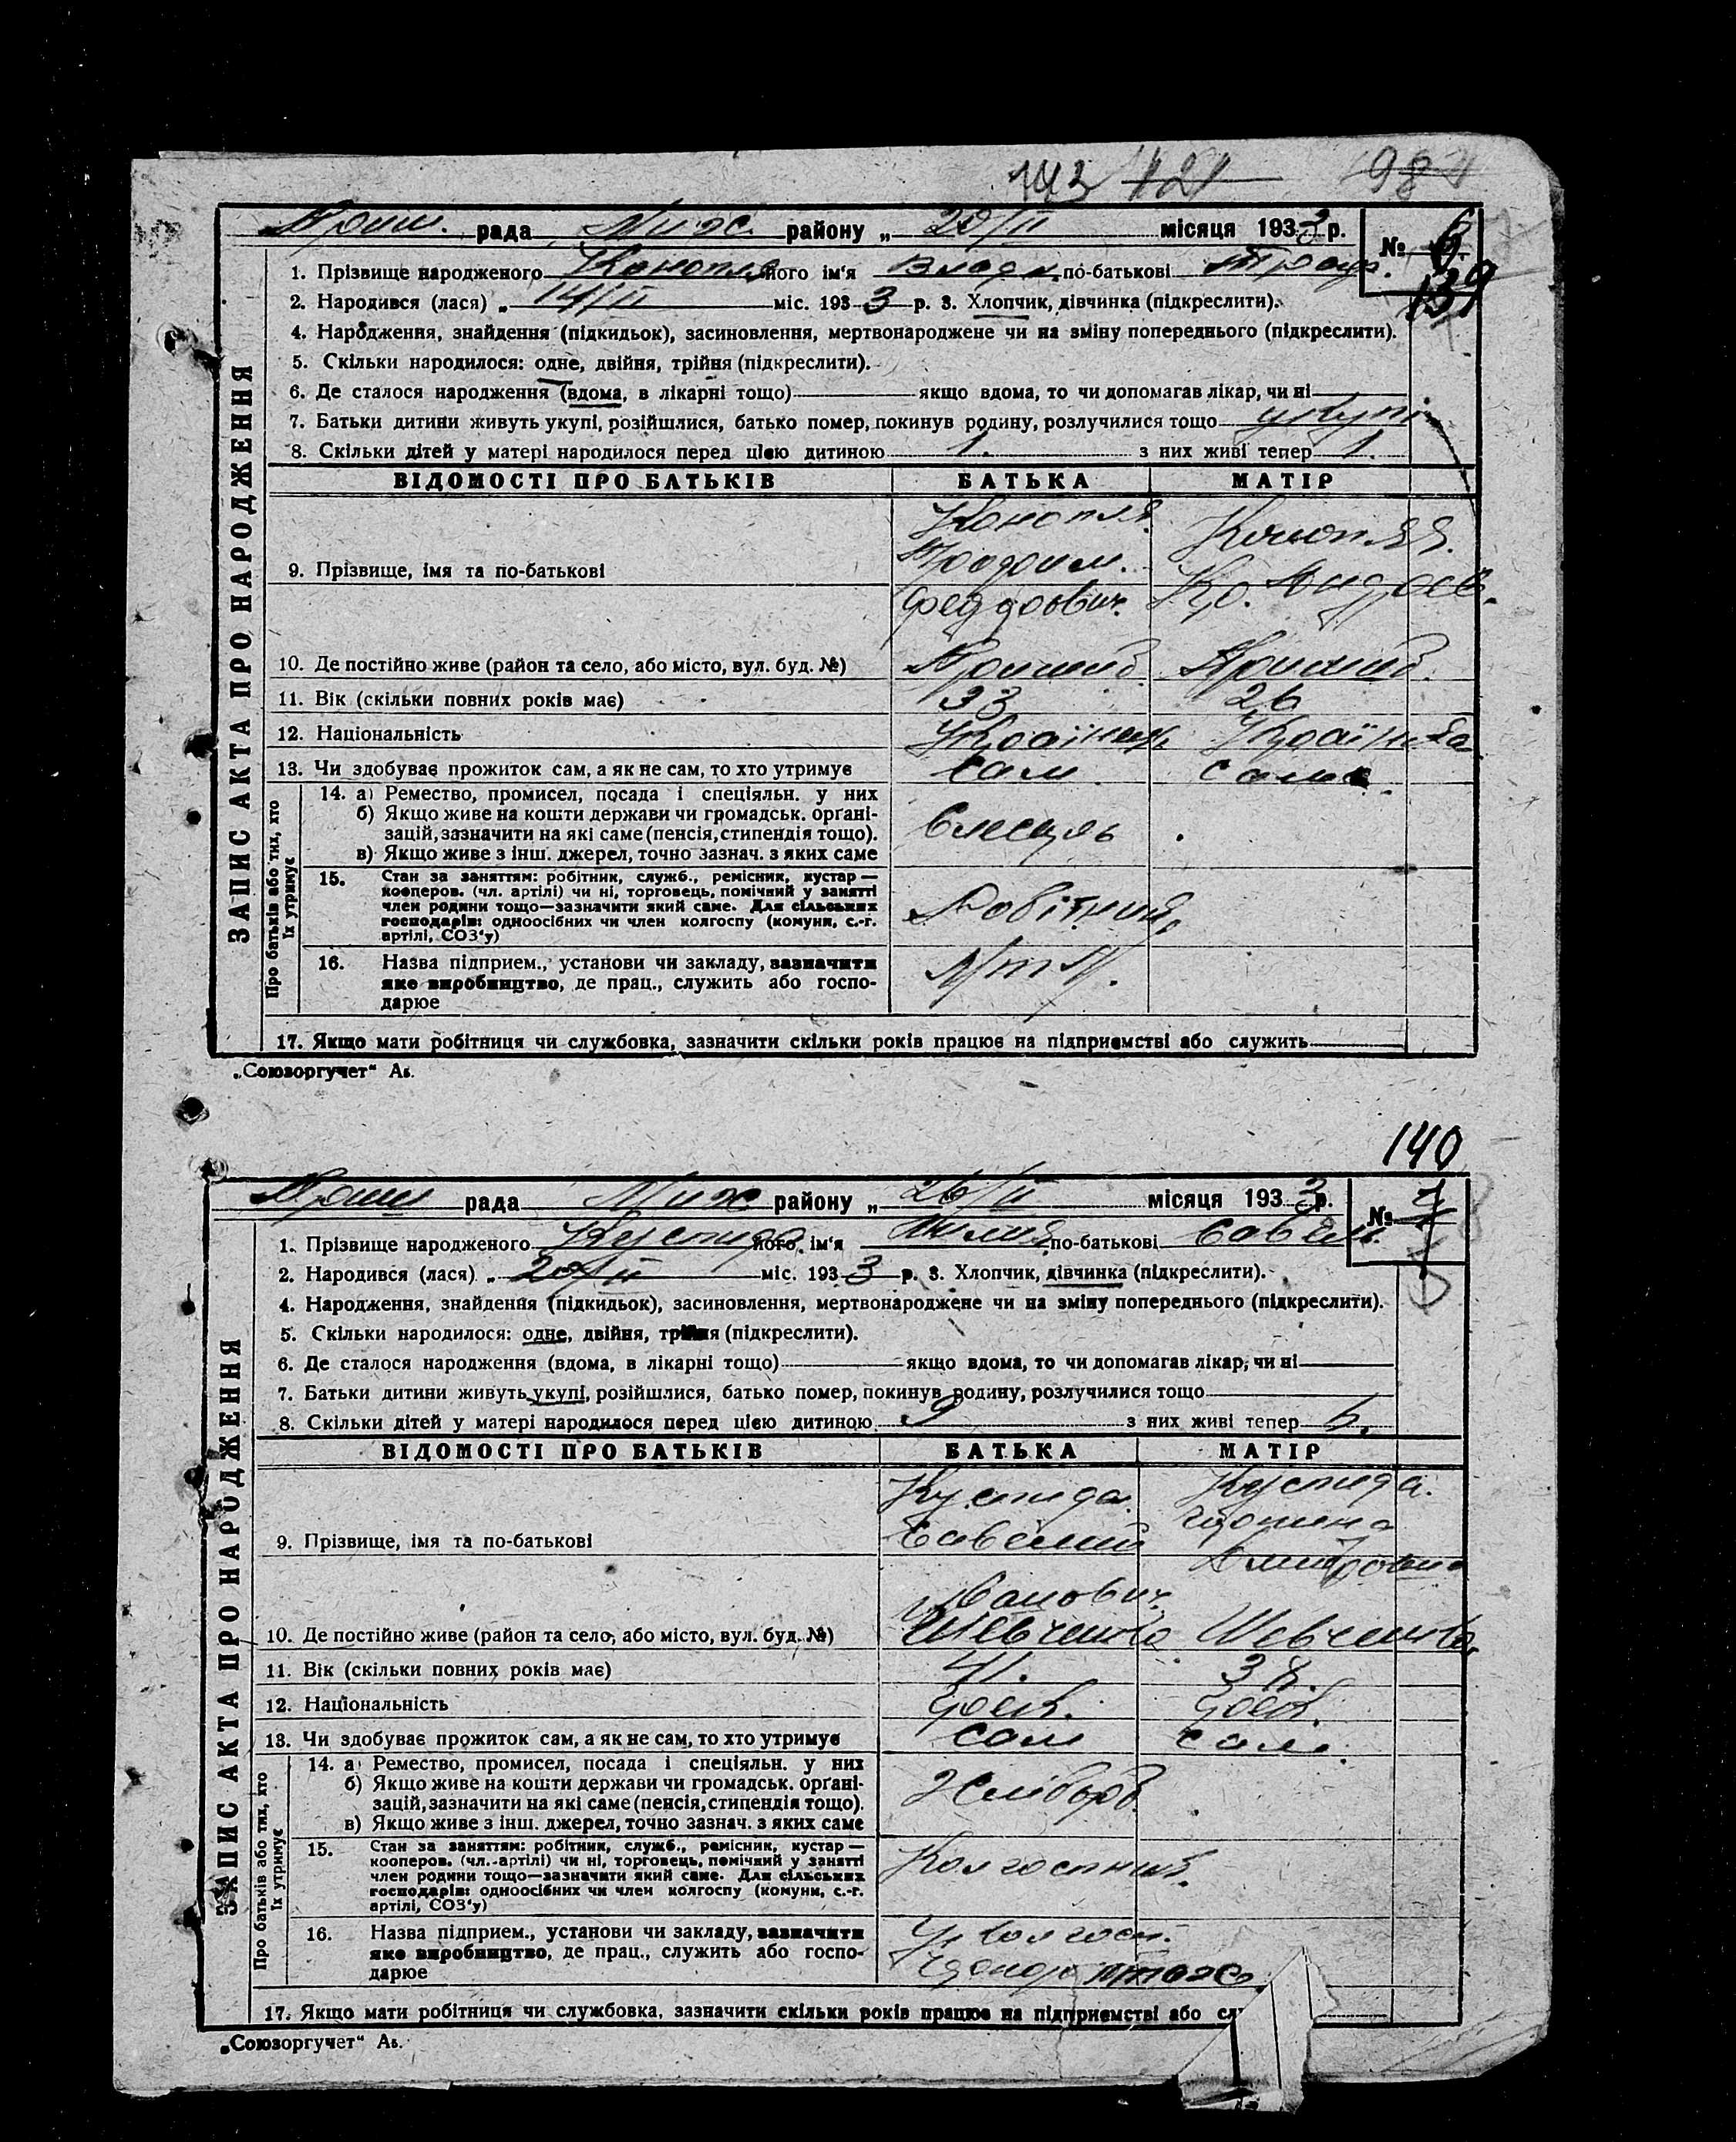 143 121 98
рада Миж. району „ 20/II місяця 1933 р. № 6
139
1. Прізвище народженого Конопля його ім'я Влад по-батькові Трох.
2. Народився (лася) „ 14/II міс. 1933 р. 3. Хлопчик, дівчинка (підкреслити).
4. Народження, знайдення (підкидьок), засиновлення, мертвонароджене чи на зміну попереднього (підкреслити).
5. Скільки народилося: одне, двійня, трійня (підкреслити).
6. Де сталося народження (вдома, в лікарні тощо) якщо вдома, то чи допомагав лікар, чи ні
7. Батьки дитини живуть укупі, розійшлися, батько помер, покинув родину, розлучилися тощо укупі
8. Скільки дітей у матері народилося перед цією дитиною 1. з них живі тепер 1.
ЗАПИС АКТА ПРО НАРОДЖЕННЯ
ВІДОМОСТІ ПРО БАТЬКІВ БАТЬКА МАТІР
Конопля Конопля.
9. Прізвище, імя та по-батькові
10. Де постійно живе (район та село, або місто, вул. буд. №)
11. Вік (скільки повних років має) 33 26
12. Національність Українець Українка
13. Чи здобуває прожиток сам, а як не сам, то хто утримує сам сама
Про батьків або тих, хто їх утримує
14. а) Ремество, промисел, посада і спеціяльн. у них
б) Якщо живе на кошти держави чи громадськ. органі-
зацій, зазначити на які саме (пенсія, стипендія тощо). Слесарь
в) Якщо живе з інш. джерел, точно зазнач. з яких саме
15. Стан за заняттям: робітник, служб., ремісник, кустар—
кооперов. (чл. артілі) чи ні, торговець, помічний у занятті
член родини тощо—зазначити який саме. Для сільських Робітник
господарів: одноосібних чи член колгоспу (комуни, с.-г.
артілі, СОЗ'у)
16. Назва підприєм., установи чи закладу, зазначити
яке виробництво, де прац., служить або госпо-
дарює
17. Якщо мати робітниця чи службовка, зазначити скільки років працює на підприємстві або служить
„Союзоргучет“ Ав.
140
рада Миж району „ 26/II місяця 1933 р. № 7
1. Прізвище народженого його ім'я по-батькові Савел.
2. Народився (лася) „ міс. 1933 р. 3. Хлопчик, дівчинка (підкреслити).
4. Народження, знайдення (підкидьок), засиновлення, мертвонароджене чи на зміну попереднього (підкреслити).
5. Скільки народилося: одне, двійня, трійня (підкреслити).
6. Де сталося народження (вдома, в лікарні тощо) якщо вдома, то чи допомагав лікар, чи ні
7. Батьки дитини живуть укупі, розійшлися, батько помер, покинув родину, розлучилися тощо
8. Скільки дітей у матері народилося перед цією дитиною 9 з них живі тепер
ЗАПИС АКТА ПРО НАРОДЖЕННЯ
ВІДОМОСТІ ПРО БАТЬКІВ БАТЬКА МАТІР
9. Прізвище, імя та по-батькові Савелий
Іванович
10. Де постійно живе (район та село, або місто, вул. буд. №) Шевченко Шевченко
11. Вік (скільки повних років має) 41. 38.
12. Національність Грек. Грек.
13. Чи здобуває прожиток сам, а як не сам, то хто утримує сам сам.
Про батьків або тих, хто їх утримує
14. а) Ремество, промисел, посада і спеціяльн. у них
б) Якщо живе на кошти держави чи громадськ. органі-
зацій, зазначити на які саме (пенсія, стипендія тощо). Хлібороб
в) Якщо живе з інш. джерел, точно зазнач. з яких саме
15. Стан за заняттям: робітник, служб., ремісник, кустар—
кооперов. (чл. артілі) чи ні, торговець, помічний у занятті
член родини тощо—зазначити який саме. Для сільських Колгоспник.
господарів: одноосібних чи член колгоспу (комуни, с.-г.
артілі, СОЗ'у)
16. Назва підприєм., установи чи закладу, зазначити У колгосп.
яке виробництво, де прац., служить або госпо-
дарює
17. Якщо мати робітниця чи службовка, зазначити скільки років працює на підприємстві або
„Союзоргучет“ Ав.